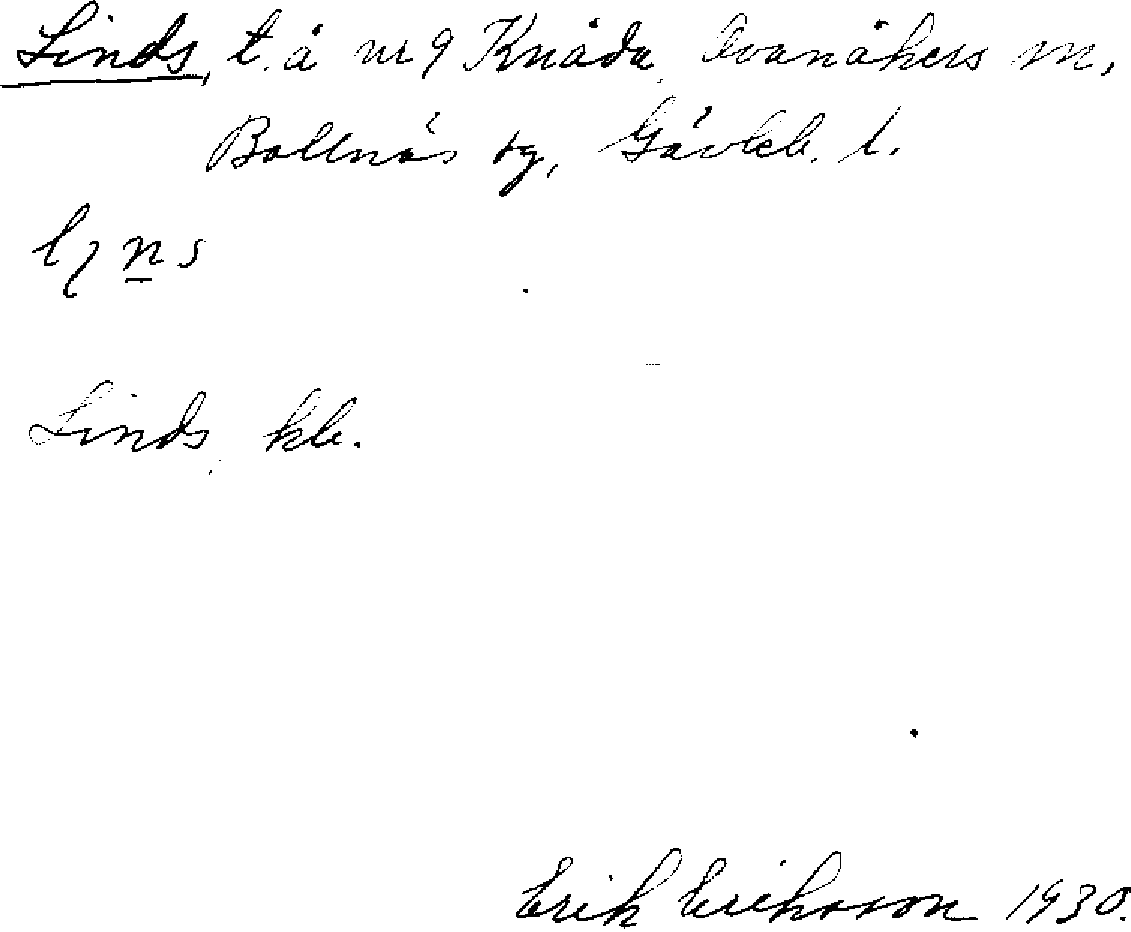 Linds, t. å nr 9 Knåda, Ovanåkers sn,
Bollnäs tg, Gävleb. l.
Linds, kb.
Erik Eriksson 1930.